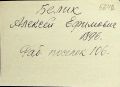 Белик
Алексей Ефимович
1896.
Раб посёлок 106.